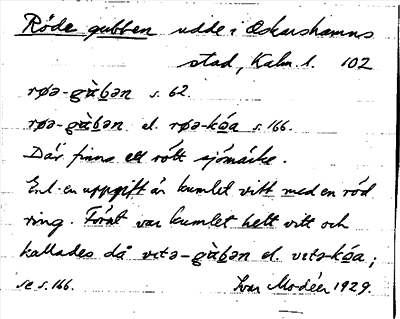 Röde gubben udde i Oskarshamns
stad, Kalm. l. 102
røə-gùbən s. 62.
røə-gùbən el. røə-kóa s. 166.
Där finns ett rött sjömärke.
Enl. en uppgift är kumlet vitt med en röd
ring. Förut var kumlet helt vitt och
kallades då vitə-gùbən el. vitə-kóa;
se s. 166. Ivar Modéer 1929.